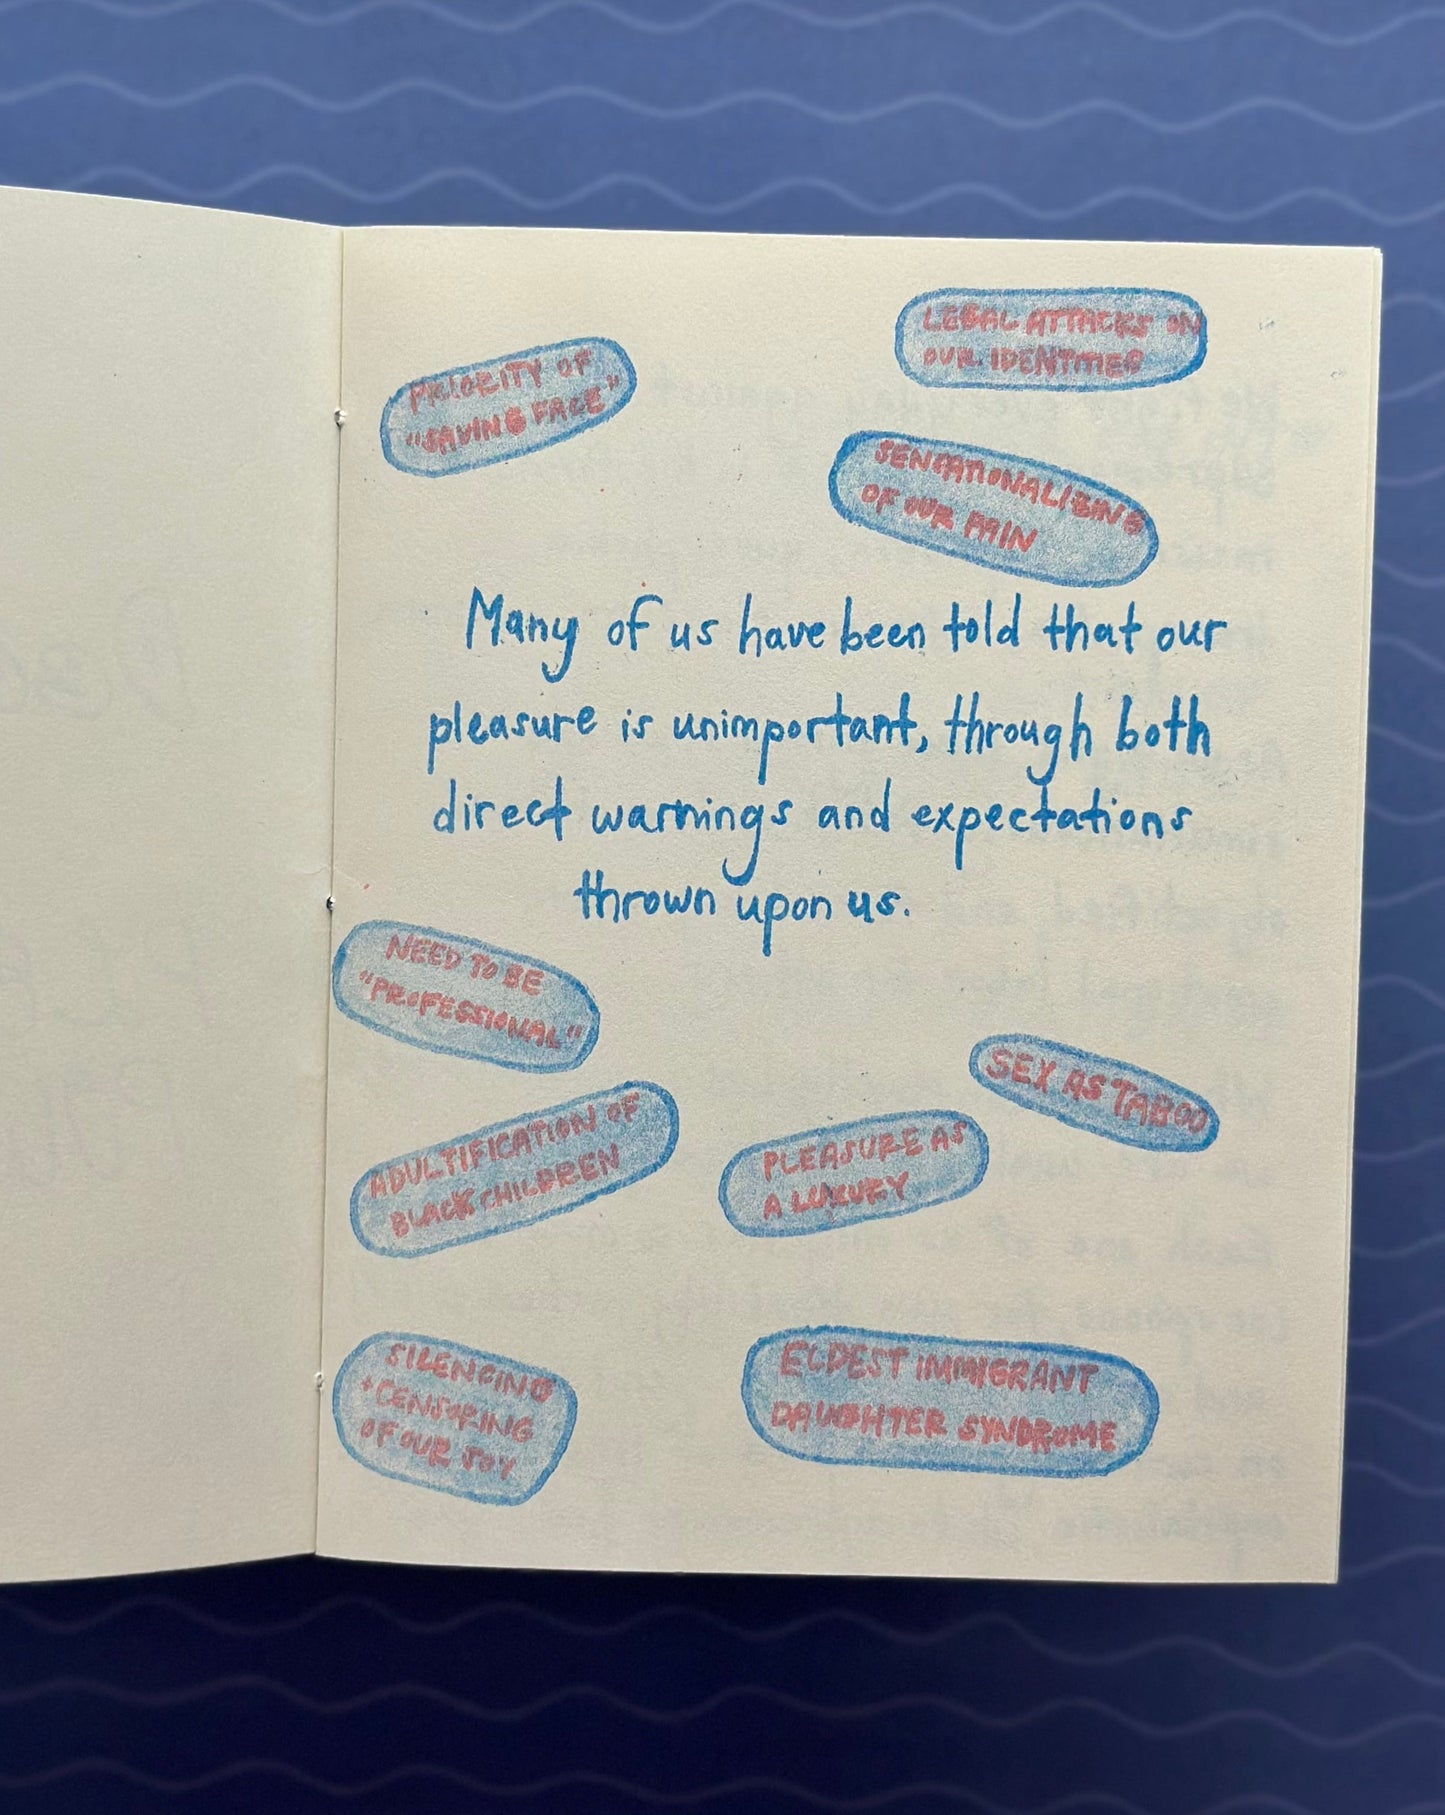 PRIORITY OF
"SAVING FACE"
LEGAL ATTACKS ON
OUR IDENTITIES
SENSATIONALIZING
OF OUR PAIN
Many of us have been told that our
pleasure is unimportant, through both
direct warnings and expectations
thrown upon us.
NEED TO BE
"PROFESSIONAL"
SEX AS TABOO
ADULTIFICATION OF
BLACK CHILDREN
PLEASURE AS
A LUXURY
SILENCING
+CENSORING
OF OUR JOY
ELDEST IMMIGRANT
DAUGHTER SYNDROME